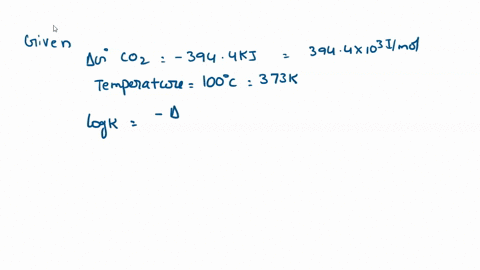 Given
ΔG° CO₂ = -394.4KJ = 394.4×10³J/mol
Temperature = 100°C = 373K
logK = -Δ